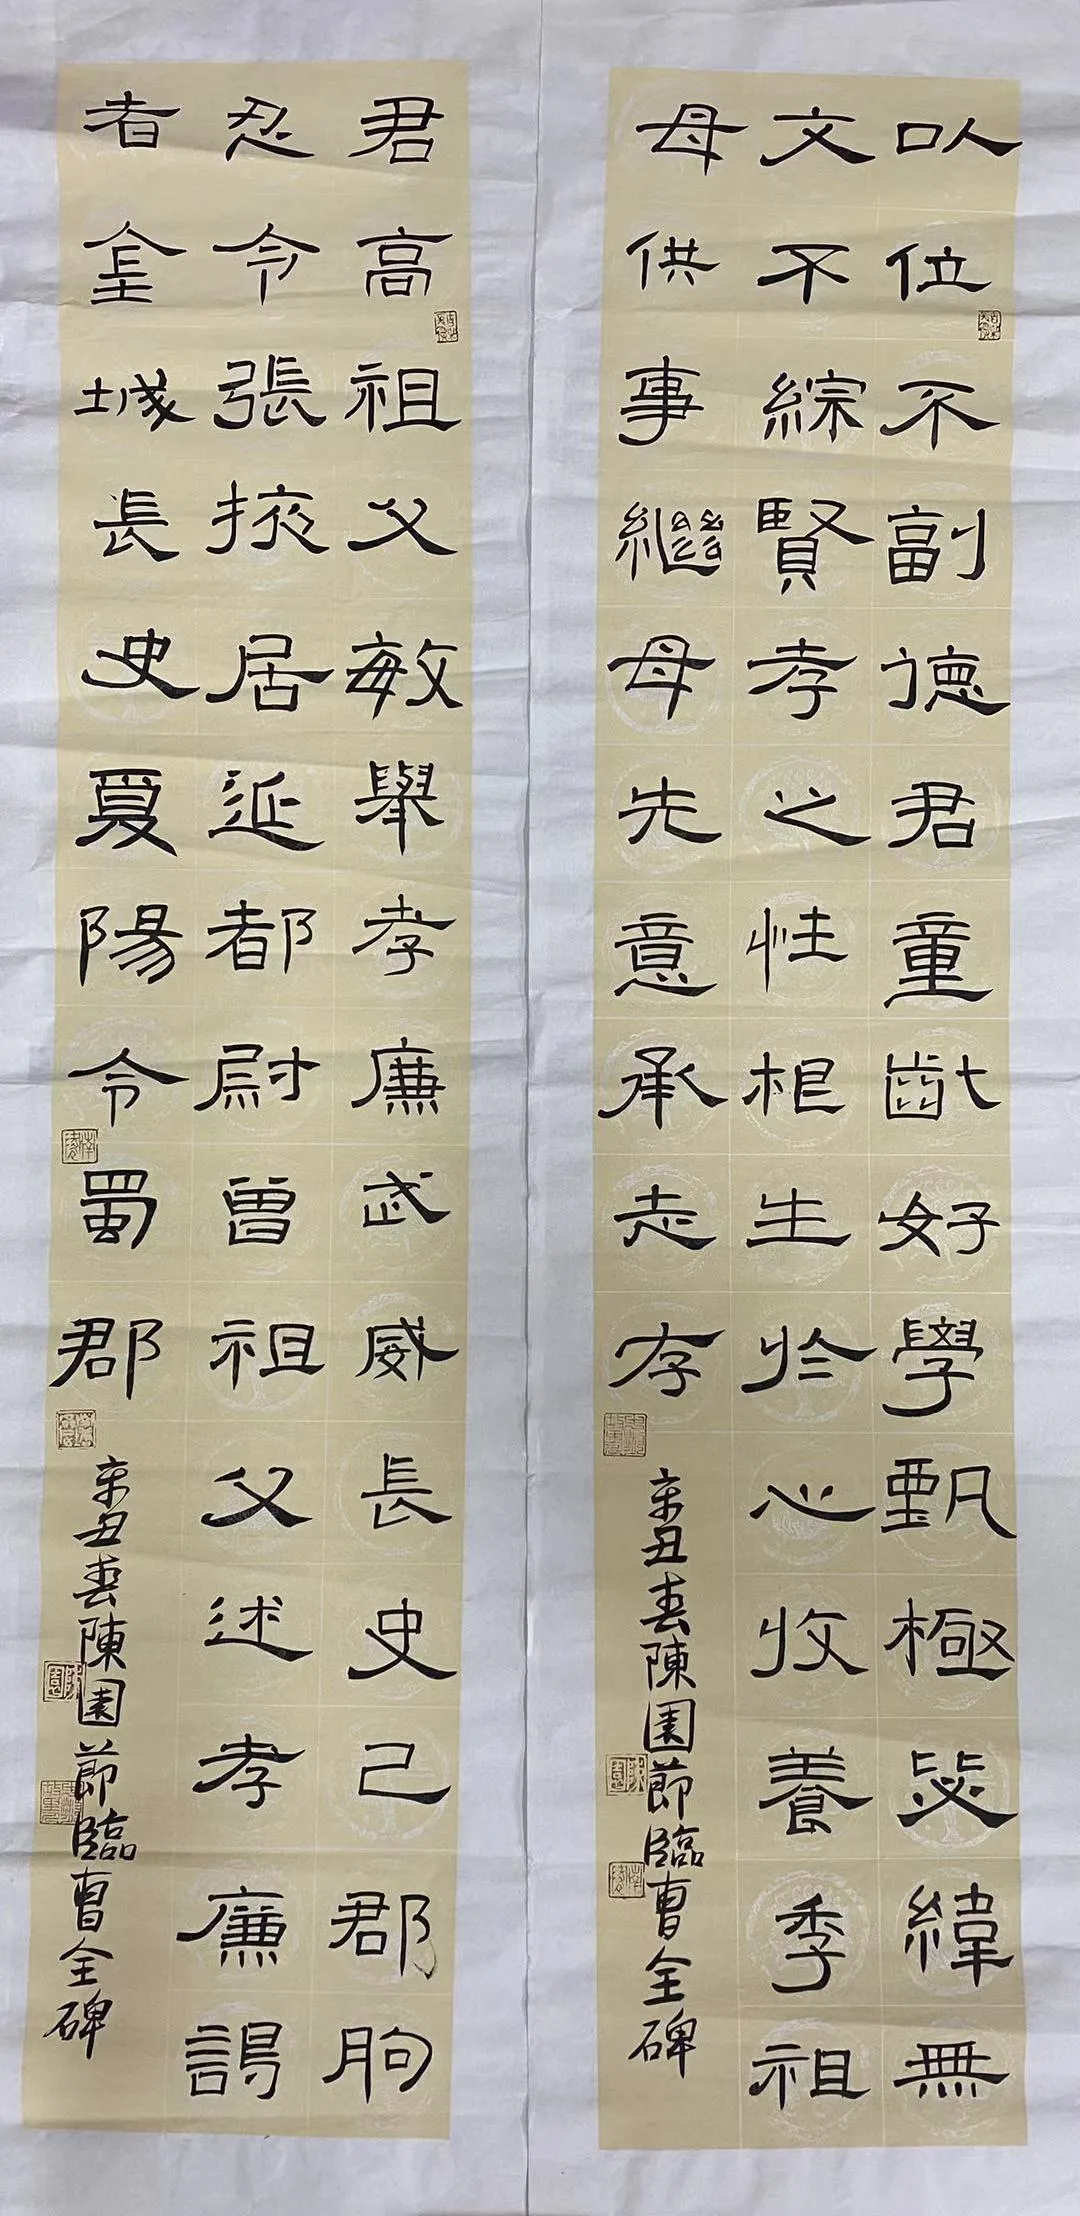 以位不副德君童齔好學甄極毖緯無
文不綜賢孝之性根生於心收養季祖
母供事繼母先意承志存
辛丑春陳園節臨曹全碑
君高祖父敏舉孝廉武威長史巴郡朐
忍令張掖居延都尉曾祖父述孝廉謁
者金城長史夏陽令蜀郡
辛丑春陳園節臨曹全碑